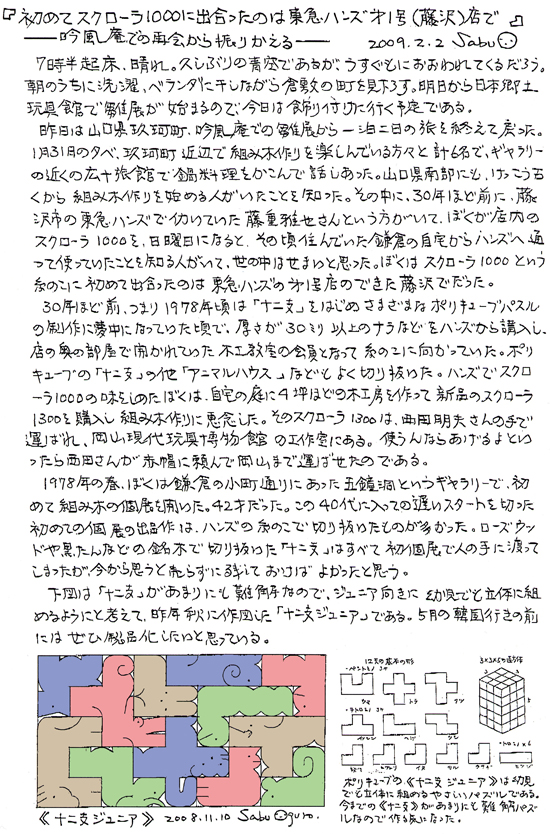 『初めてスクローラ1000に出合ったのは東急ハンズ才1号(藤沢)店で』
——吟風庵での再会から振りかえる——　2009.2.2 Sabu
7時半起床、晴れ。久しぶりの青空であるがうすぐもにおおわれてくるだろう。
朝のうちに洗濯、ベランダに干しながら倉敷の町を見下ろす。明日から日本郷土
玩具館で雛展が始まるので、今日は飾り付けに行く予定である。
昨日は山口県玖珂町、吟風庵での雛展から一泊二日の旅を終えて戻った。
1月31日の夕べ、玖珂町近辺で組み木作りを楽しんでいる方々と計6名で、ギャラリー
の近くの広十旅館で鍋料理をかこんで話しあった。山口県南部にも、けっこう古
くから組み木作りを始める人がいたことを知った。その中に、30年ほど前に、藤
沢市の東急ハンズで働いていた藤重雅也さんという方がいて、ぼくが店内の
スクローラ1000を、日曜日になると、その頃住んでいた鎌倉の自宅からハンズへ通
って使っていたことを知る人がいて、世の中はせまいと思った。ぼくはスクローラ1000という
糸のこに初めて出合ったのは東急ハンズの才1号店のできた藤沢でだった。
30年ほど前、つまり1978年頃は「十二支」をはじめさまざまなポリキューブパズル
の制作に夢中になっていた頃で、厚さが30ミリ以上のナラなどをハンズから購入し、
店の奥の部屋で開かれていた木工教室の会員となって糸のこに向かっていた。ポリ
キューブの「十二支」の他「アニマルハウス」などもよく切り抜いた。ハンズでスクロー
ラ1000の味をしめたぼくは、自宅の庭に4坪ほどの木工房を作って新品のスクローラ
1300を購入し組み木作りに専念した。そのスクローラ1300は、西田明夫さんの手で
運ばれ、岡山現代玩具博物館の工作室にある。使うんならあげるよとい
ったら西田さんが赤帽に頼んで岡山まで運ばせたのである。
1978年の春、ぼくは鎌倉の小町通りにあった五鐘洞というギャラリーで、初
めて組み木の個展を開いた。42才だった。この40代に入っての遅いスタートを切った
初めての個展の出品作は、ハンズの糸のこで切り抜いたものが多かった。ローズウッ
ドや黒たんなどの銘木で切り抜いた「十二支」はすべて初個展で人の手に渡って
しまったが、今から思うと売らずに残しておけばよかったと思う。
下図は「十二支」があまりにも難解なので、ジュニア向きに幼児でも立体に組
めるようにと考えて、昨年秋に作図した「十二支ジュニア」である。5月の韓国行きの前
にはぜひ製品化したいと思っている。
12支の基本の形
3×3×5の直方体
・ペントミノ 3ヶ
ウマ
トラ
・テトロミノ
ヘビ
トリミノ×6
ポリキューブの《十二支ジュニア》は幼児
でも立体に組めるやさしいパズルである。
今までの《十二支》があまりにも難解パズ
ルなので作り直しになった。
《十二支ジュニア》 2008.11.10 Sabu Oguro.